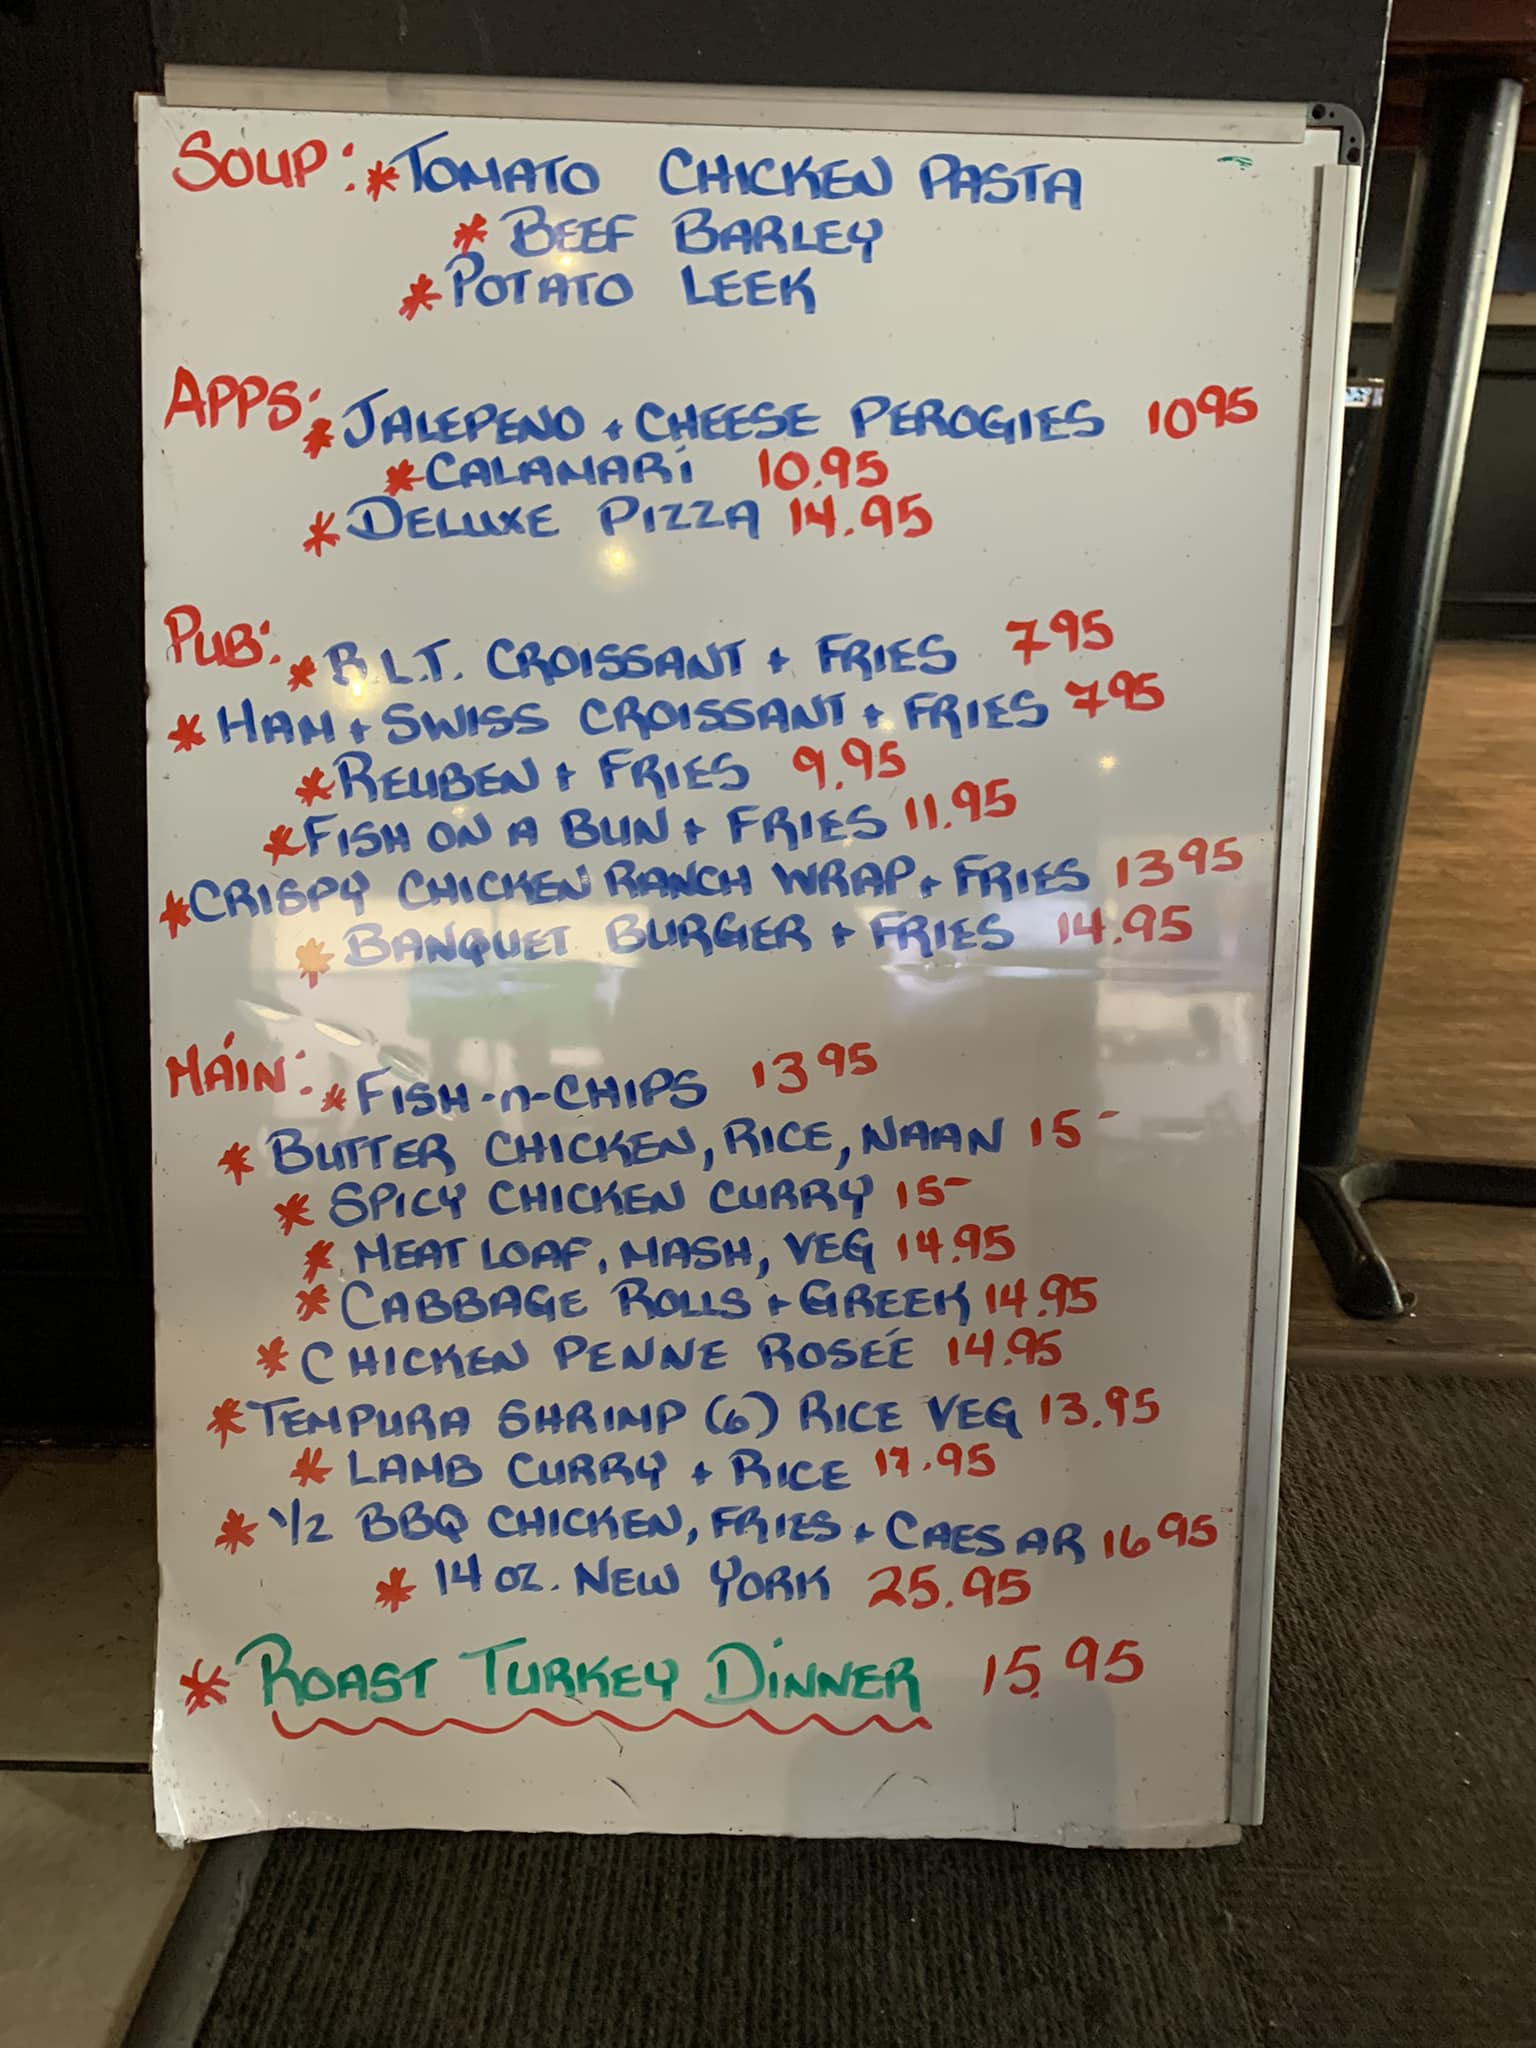 SOUP: *TOMATO CHICKEN PASTA
* BEEF BARLEY
* POTATO LEEK
APPS: * JALEPENO + CHEESE PEROGIES 1095
* CALAMARI 10.95
* DELUXE PIZZA 14.95
PUB: * B.L.T. CROISSANT + FRIES 795
* HAM + SWISS CROISSANT + FRIES 795
* REUBEN + FRIES 9.95
* FISH ON A BUN + FRIES 11.95
* CRISPY CHICKEN RANCH WRAP + FRIES 1395
* BANQUET BURGER + FRIES 14.95
MAIN: * FISH-n-CHIPS 1395
* BUTTER CHICKEN, RICE, NAAN 15-
* SPICY CHICKEN CURRY 15-
* MEAT LOAF, MASH, VEG 14.95
* CABBAGE ROLLS + GREEK 14.95
* CHICKEN PENNE ROSÉE 14.95
* TEMPURA SHRIMP (6) RICE VEG 13.95
* LAMB CURRY + RICE 17.95
* 1/2 BBQ CHICKEN, FRIES + CAESAR 1695
* 14 OZ. NEW YORK 25.95
* ROAST TURKEY DINNER 15.95